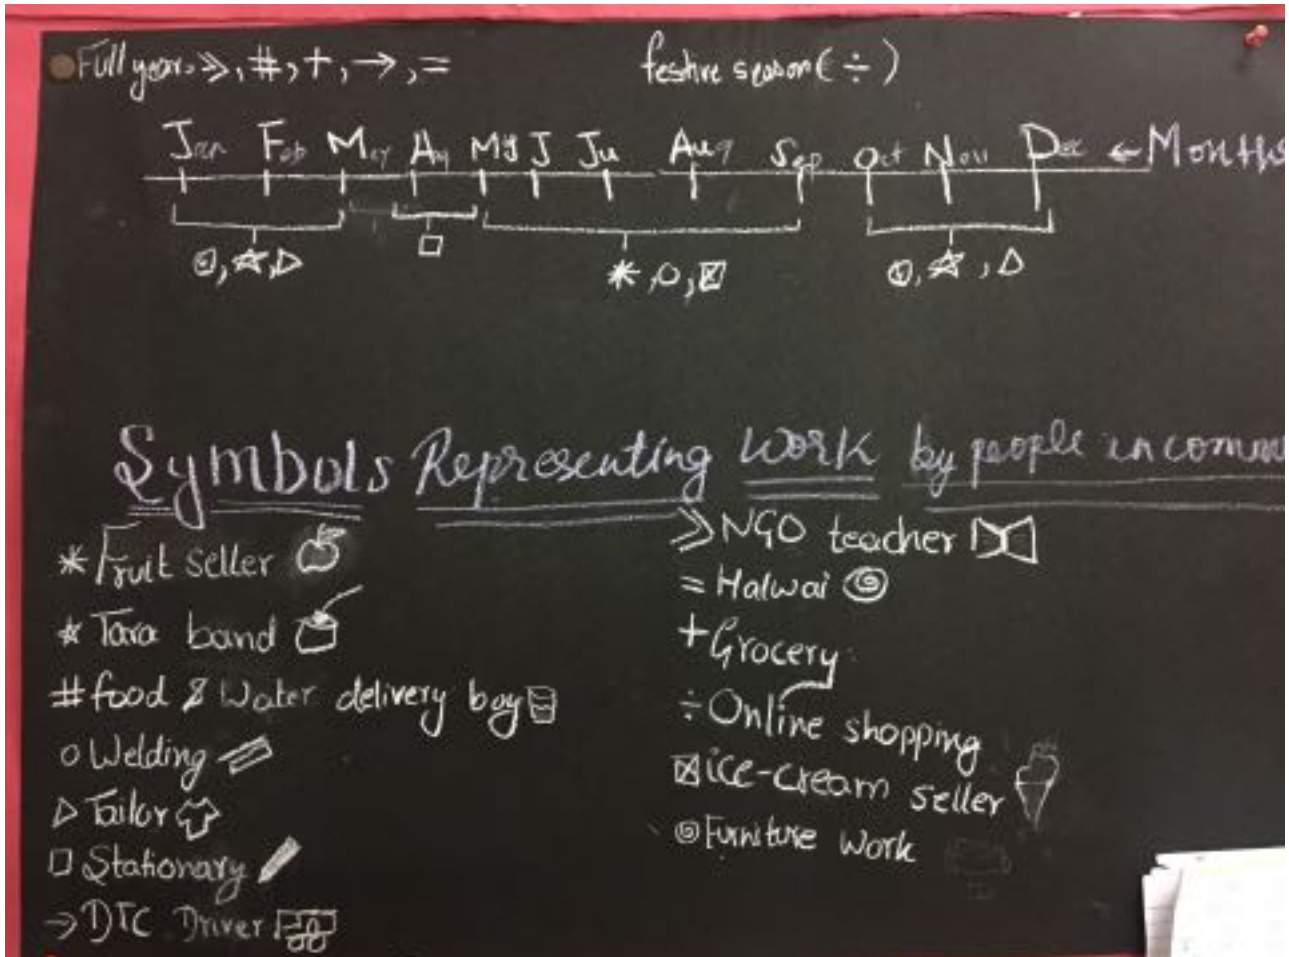 Full year → ≫, #, +, →, =
festive season (÷)
Jan Feb Mar Ap My J Ju Aug Sep Oct Nov Dec ← Months
Symbols Representing work by people in commu
* Fruit seller
☆ Tara band
# food & Water delivery boy
○ Welding
▷ Tailor
□ Stationary
→ DTC Driver
≫ NGO teacher
= Halwai
+ Grocery
÷ Online shopping
⊠ ice-cream seller
◎ Furniture work